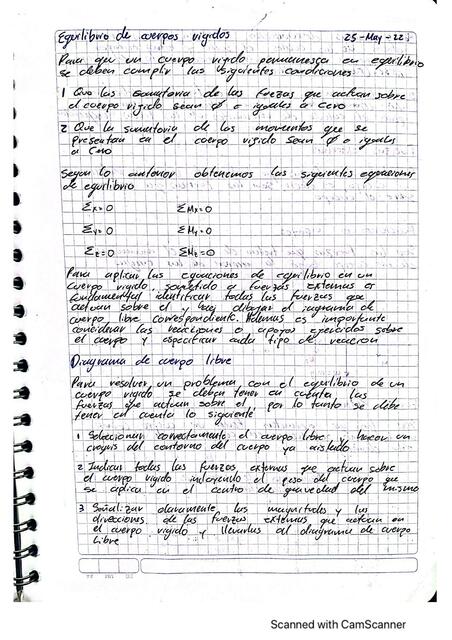 Equilibrio de cuerpos rigidos 25-May-22
Para que un cuerpo rigido permanezca en equilibrio
se deben cumplir las siguientes condiciones
1 Que las sumatoria de las fuerzas que actuan sobre
el cuerpo rigido sean ∅ o iguales a cero
2 Que la sumatoria de los momentos que se
presentan en el cuerpo rigido sean ∅ o iguales
a Cero
Segun lo anterior obtenemos las siguientes equaciones
de equilibrio
Σx=0 ΣMx=0
Σy=0 ΣMy=0
Σz=0 ΣMz=0
Para aplicar las equaciones de equilibrio en un
cuerpo rigido, sometido a fuerzas externas es
fundamental identificar todas las fuerzas que
actuan sobre el y dibujar el diagrama de
cuerpo libre correspondiente. Ademas es importante
considerar las reacciones o apoyos ejercidos sobre
el cuerpo y especificar cada tipo de reaccion
Diagrama de cuerpo libre
Para resolver un problema con el equilibrio de un
cuerpo rigido se deben tener en cuenta las
fuerzas que actuan sobre el, por lo tanto se debe
tener en cuenta lo siguiente
1 Seleccionar correctamente el cuerpo libre y hacer un
croquis del contorno del cuerpo ya aislado
2 Indicar todas las fuerzas externas que actuan sobre
el cuerpo rigido incluyendo el peso del cuerpo que
se aplica en el centro de gravedad del mismo
3 Señalizar claramente las magnitudes y las
direcciones de las fuerzas externas que actuan en
el cuerpo rigido y llevarlas al diagrama de cuerpo
libre
Scanned with CamScanner